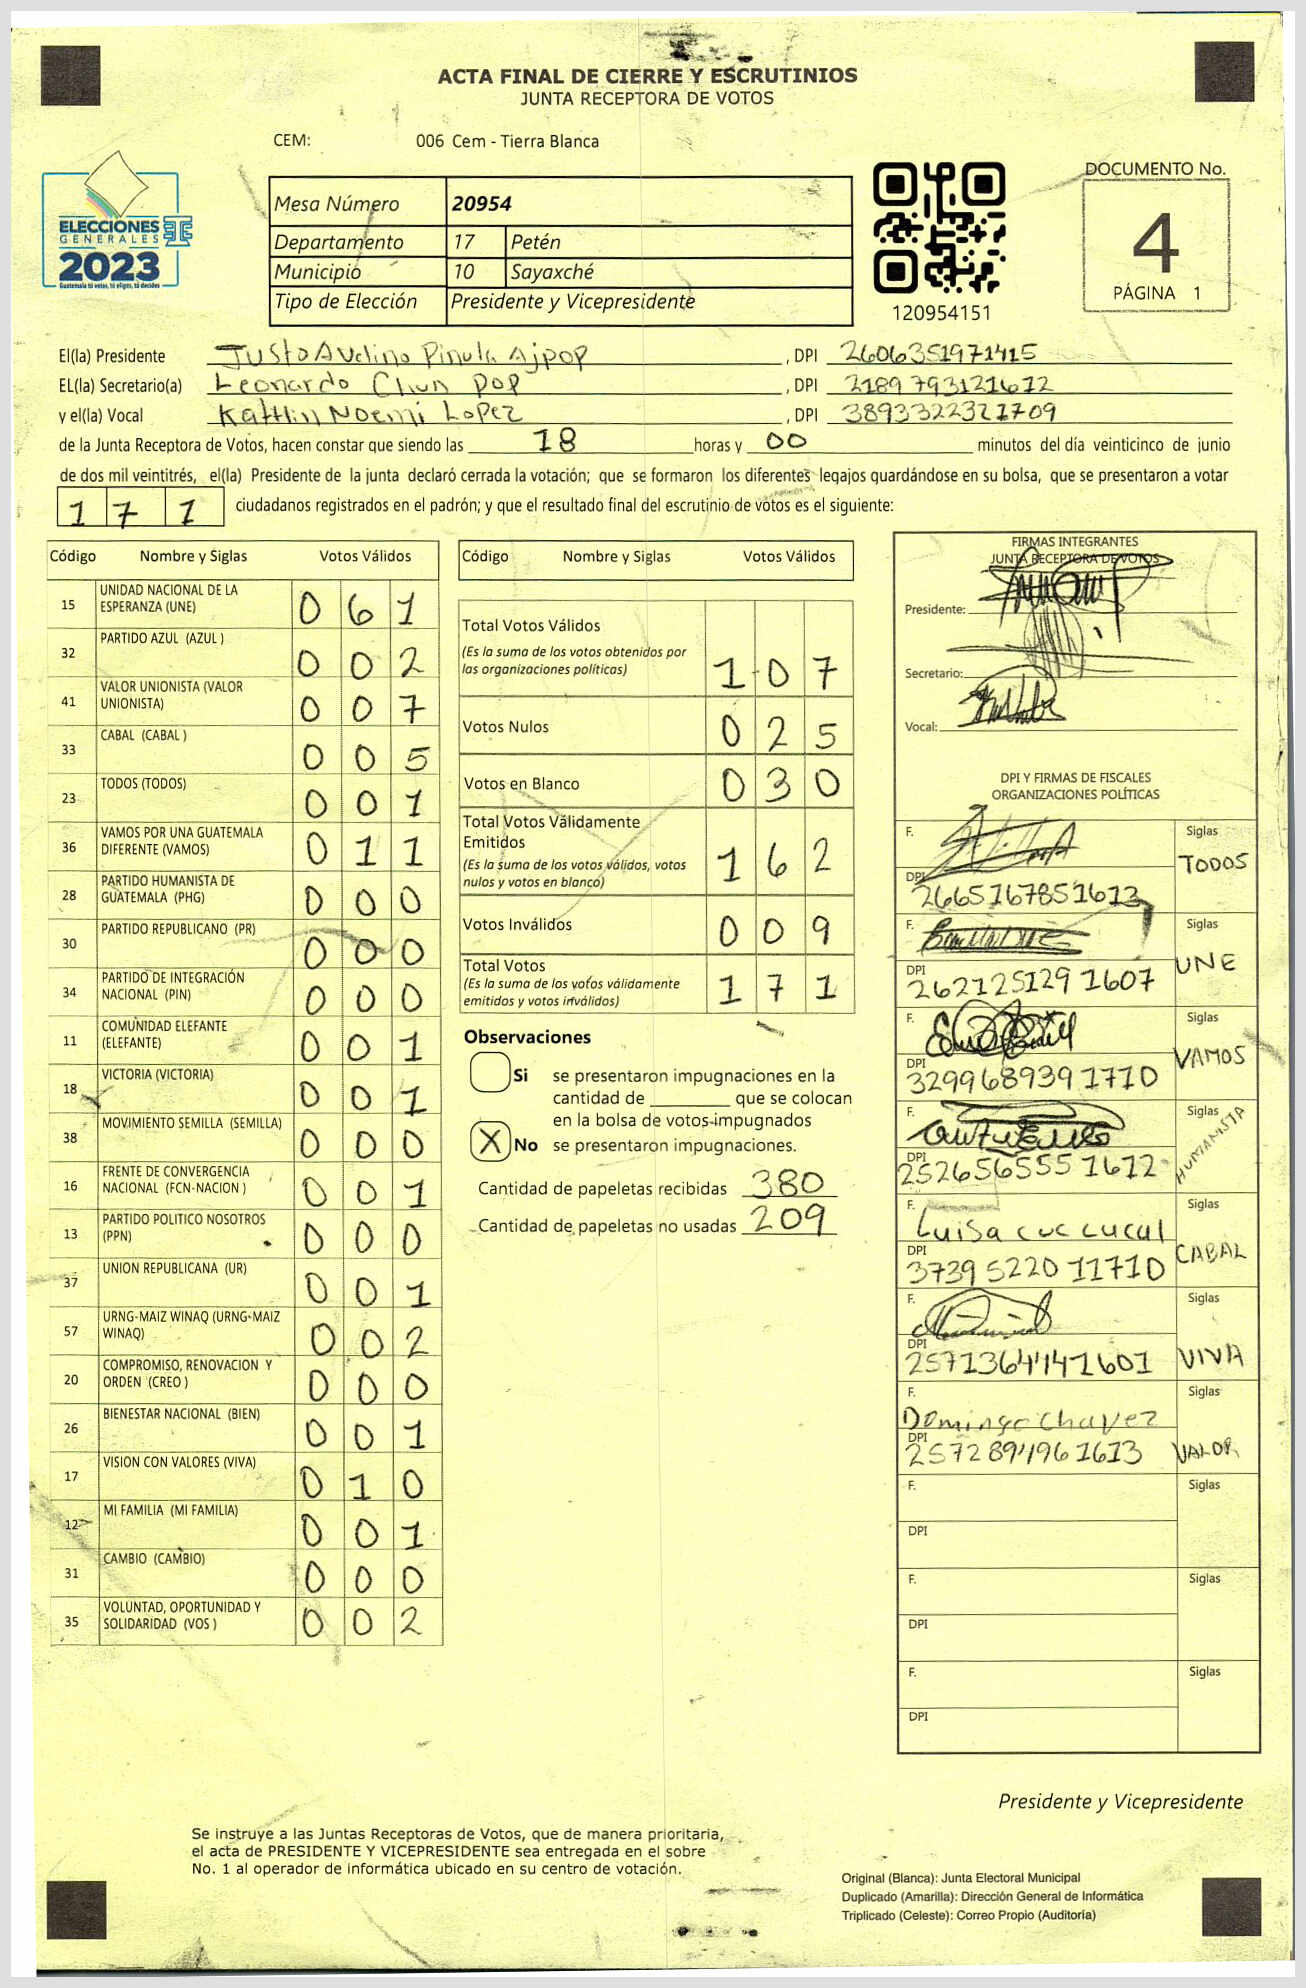 ACTA FINAL DE CIERRE Y ESCRUTINIOS
JUNTA RECEPTORA DE VOTOS
CEM: 006 Cem - Tierra Blanca
ELECCIONES
GENERALES
2023
Guatemala tú votas, tú eliges, tú decides
Mesa Número 20954
Departamento 17 Petén
Municipio 10 Sayaxché
Tipo de Elección Presidente y Vicepresidente
120954151
DOCUMENTO No.
4
PÁGINA 1
El(la) Presidente Justo Avelino Pinula Ajpop, DPI 2606351971415
EL(la) Secretario(a) Leonardo Chun Pop, DPI 2189793121612
y el(la) Vocal Kathlin Noemi Lopez, DPI 3893322321709
de la Junta Receptora de Votos, hacen constar que siendo las 18 horas y 00 minutos del día veinticinco de junio
de dos mil veintitrés, el(la) Presidente de la junta declaró cerrada la votación; que se formaron los diferentes legajos guardándose en su bolsa, que se presentaron a votar
171 ciudadanos registrados en el padrón; y que el resultado final del escrutinio de votos es el siguiente:
Código Nombre y Siglas Votos Válidos
15 UNIDAD NACIONAL DE LA ESPERANZA (UNE) 061
32 PARTIDO AZUL (AZUL ) 002
41 VALOR UNIONISTA (VALOR UNIONISTA) 007
33 CABAL (CABAL ) 005
23 TODOS (TODOS) 001
36 VAMOS POR UNA GUATEMALA DIFERENTE (VAMOS) 011
28 PARTIDO HUMANISTA DE GUATEMALA (PHG) 000
30 PARTIDO REPUBLICANO (PR) 000
34 PARTIDO DE INTEGRACIÓN NACIONAL (PIN) 000
11 COMUNIDAD ELEFANTE (ELEFANTE) 001
18 VICTORIA (VICTORIA) 001
38 MOVIMIENTO SEMILLA (SEMILLA) 000
16 FRENTE DE CONVERGENCIA NACIONAL (FCN-NACION ) 001
13 PARTIDO POLITICO NOSOTROS (PPN) 000
37 UNION REPUBLICANA (UR) 001
57 URNG-MAIZ WINAQ (URNG-MAIZ WINAQ) 002
20 COMPROMISO, RENOVACION Y ORDEN (CREO ) 000
26 BIENESTAR NACIONAL (BIEN) 001
17 VISION CON VALORES (VIVA) 010
12 MI FAMILIA (MI FAMILIA) 001
31 CAMBIO (CAMBIO) 000
35 VOLUNTAD, OPORTUNIDAD Y SOLIDARIDAD (VOS ) 002
Código Nombre y Siglas Votos Válidos
Total Votos Válidos 107
(Es la suma de los votos obtenidos por
las organizaciones políticas)
Votos Nulos 025
Votos en Blanco 030
Total Votos Válidamente
Emitidos 162
(Es la suma de los votos válidos, votos
nulos y votos en blanco)
Votos Inválidos 009
Total Votos 171
(Es la suma de los votos válidamente
emitidos y votos inválidos)
Observaciones
Si se presentaron impugnaciones en la
cantidad de ________ que se colocan
en la bolsa de votos impugnados
X No se presentaron impugnaciones.
Cantidad de papeletas recibidas 380
Cantidad de papeletas no usadas 209
FIRMAS INTEGRANTES
JUNTA RECEPTORA DE VOTOS
Presidente:
Secretario:
Vocal:
DPI Y FIRMAS DE FISCALES
ORGANIZACIONES POLÍTICAS
F. Siglas TODOS
DPI 2665167851613
F. Siglas UNE
DPI 2621251291607
F. Siglas VAMOS
DPI 3299689391710
F. Siglas HUMANISTA
DPI 2526565551612
F. Luisa cuc cucul Siglas CABAL
DPI 3739522011710
F. Siglas VIVA
DPI 2571364141601
F. Domingo Chavez Siglas VALOR
DPI 2572894961613
F. Siglas
DPI
F. Siglas
DPI
F. Siglas
DPI
Presidente y Vicepresidente
Se instruye a las Juntas Receptoras de Votos, que de manera prioritaria,
el acta de PRESIDENTE Y VICEPRESIDENTE sea entregada en el sobre
No. 1 al operador de informática ubicado en su centro de votación.
Original (Blanca): Junta Electoral Municipal
Duplicado (Amarilla): Dirección General de Informática
Triplicado (Celeste): Correo Propio (Auditoría)